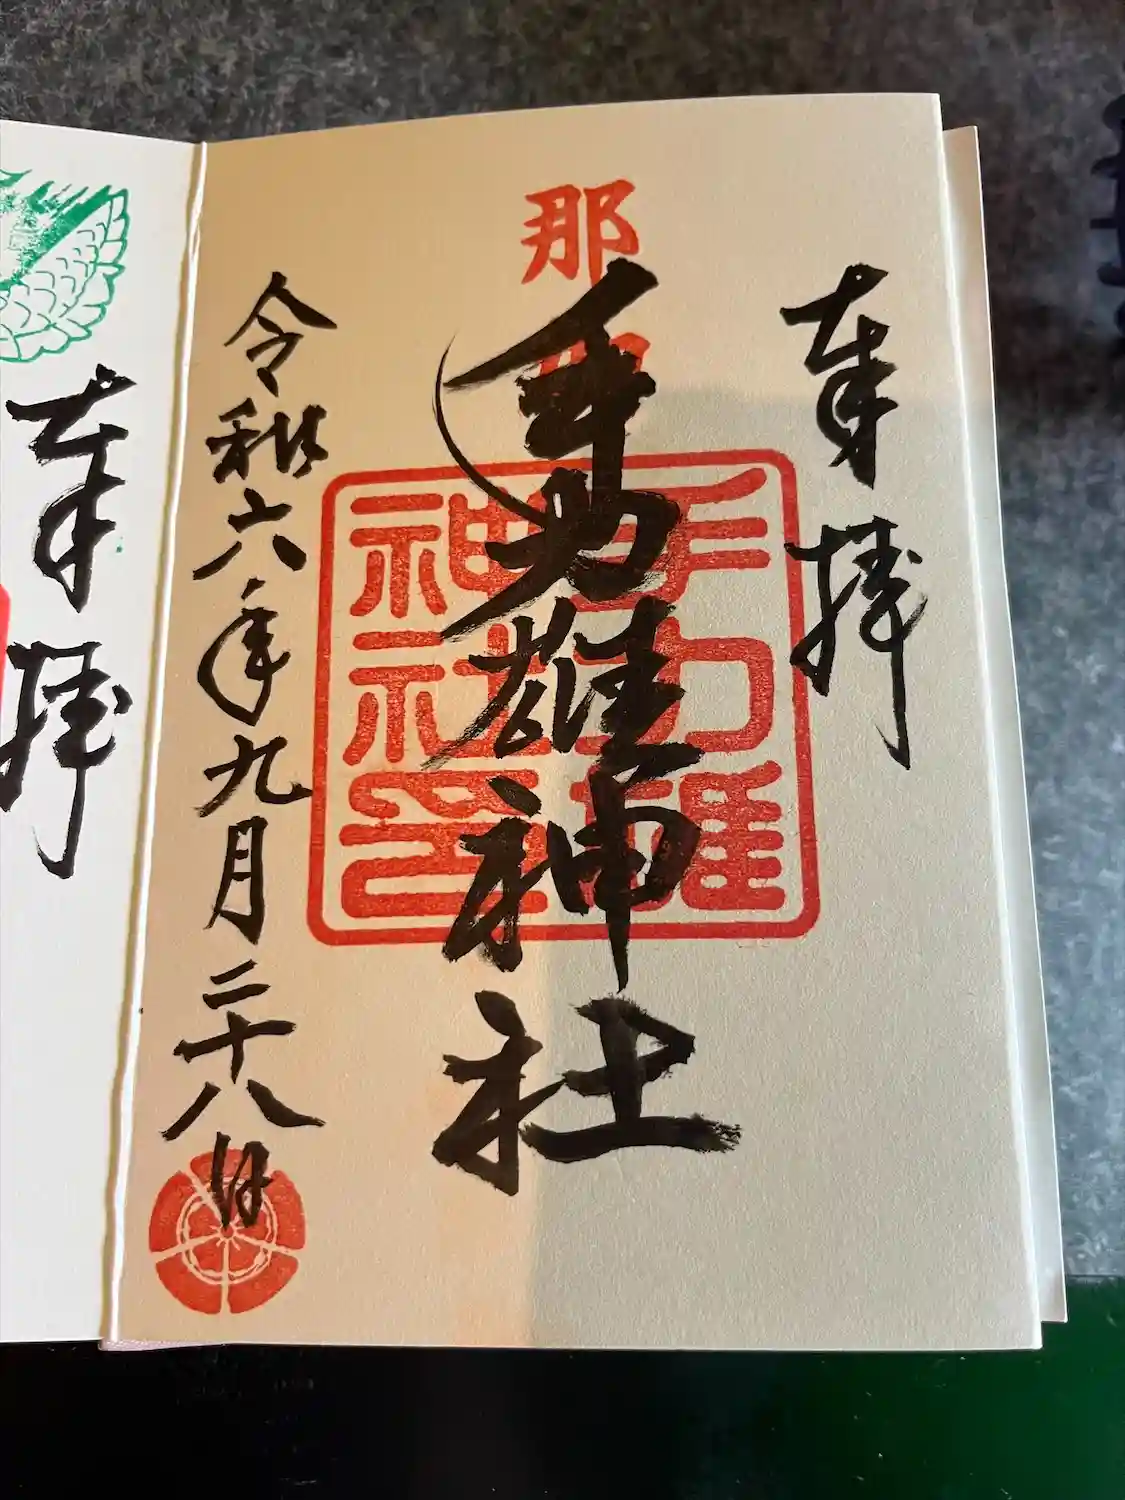 奉拝
那加
手力雄神社
手力雄
神社印
令和六年九月二十八日
奉拝